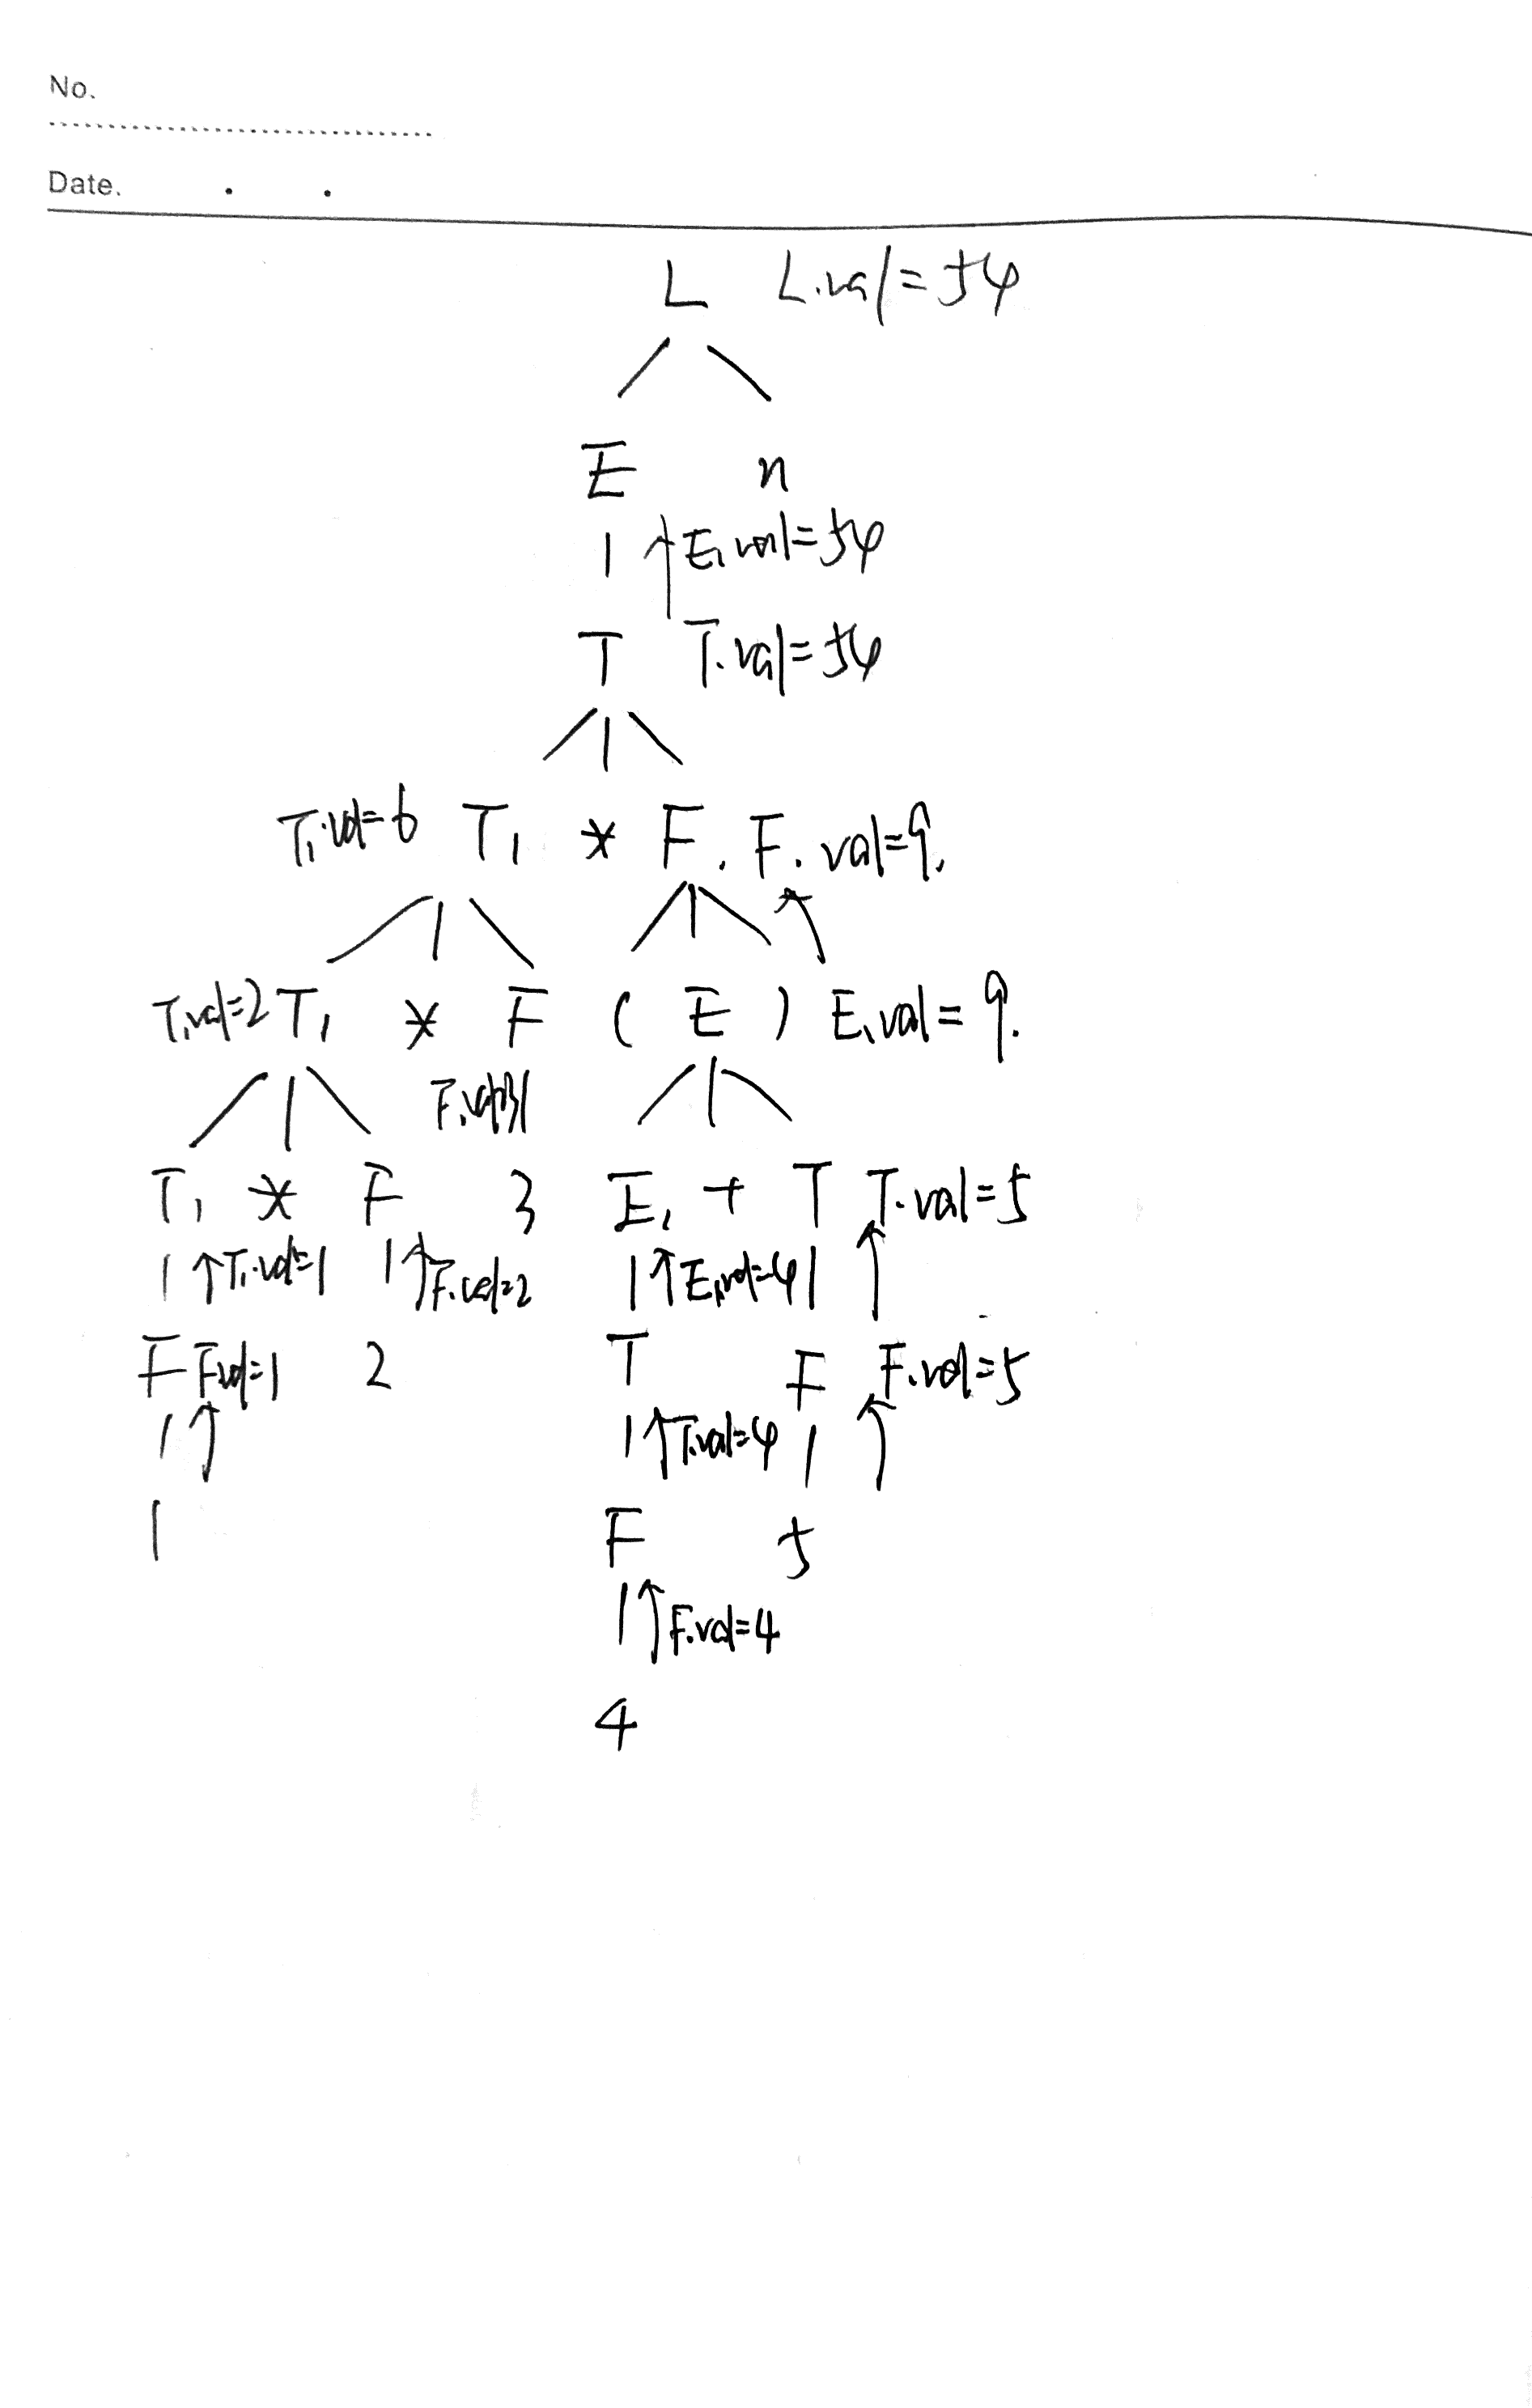 No.
Date.
L L.val=54
E n
E.val=54
T T.val=54
T₁.val=6 T₁ * F. F.val=9.
T₁.val=2 T₁ * F ( E ) E.val=9.
T₁ * F 3 E₁ + T T.val=5
T₁.val=1 F.val=2 E₁.val=4
F F.val=1 2 T F F.val=5
T.val=4
1 F 5
F.val=4
4